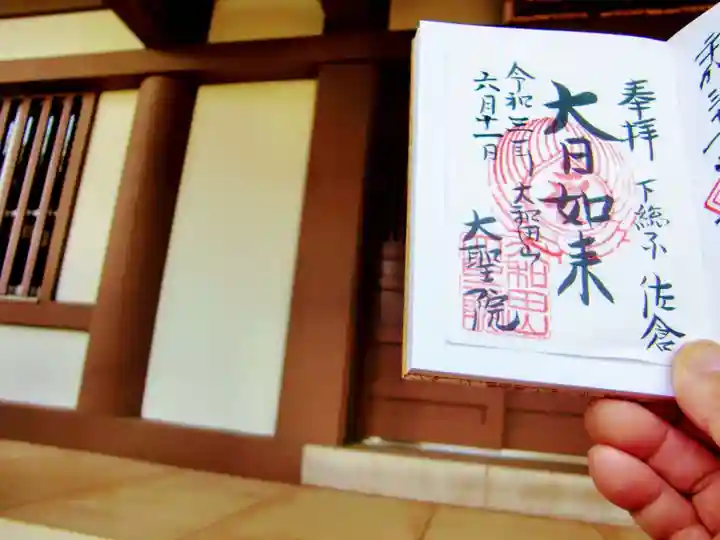 奉拝
下総国 佐倉
大日如来
令和三年 大和田山
六月十一日
大聖院